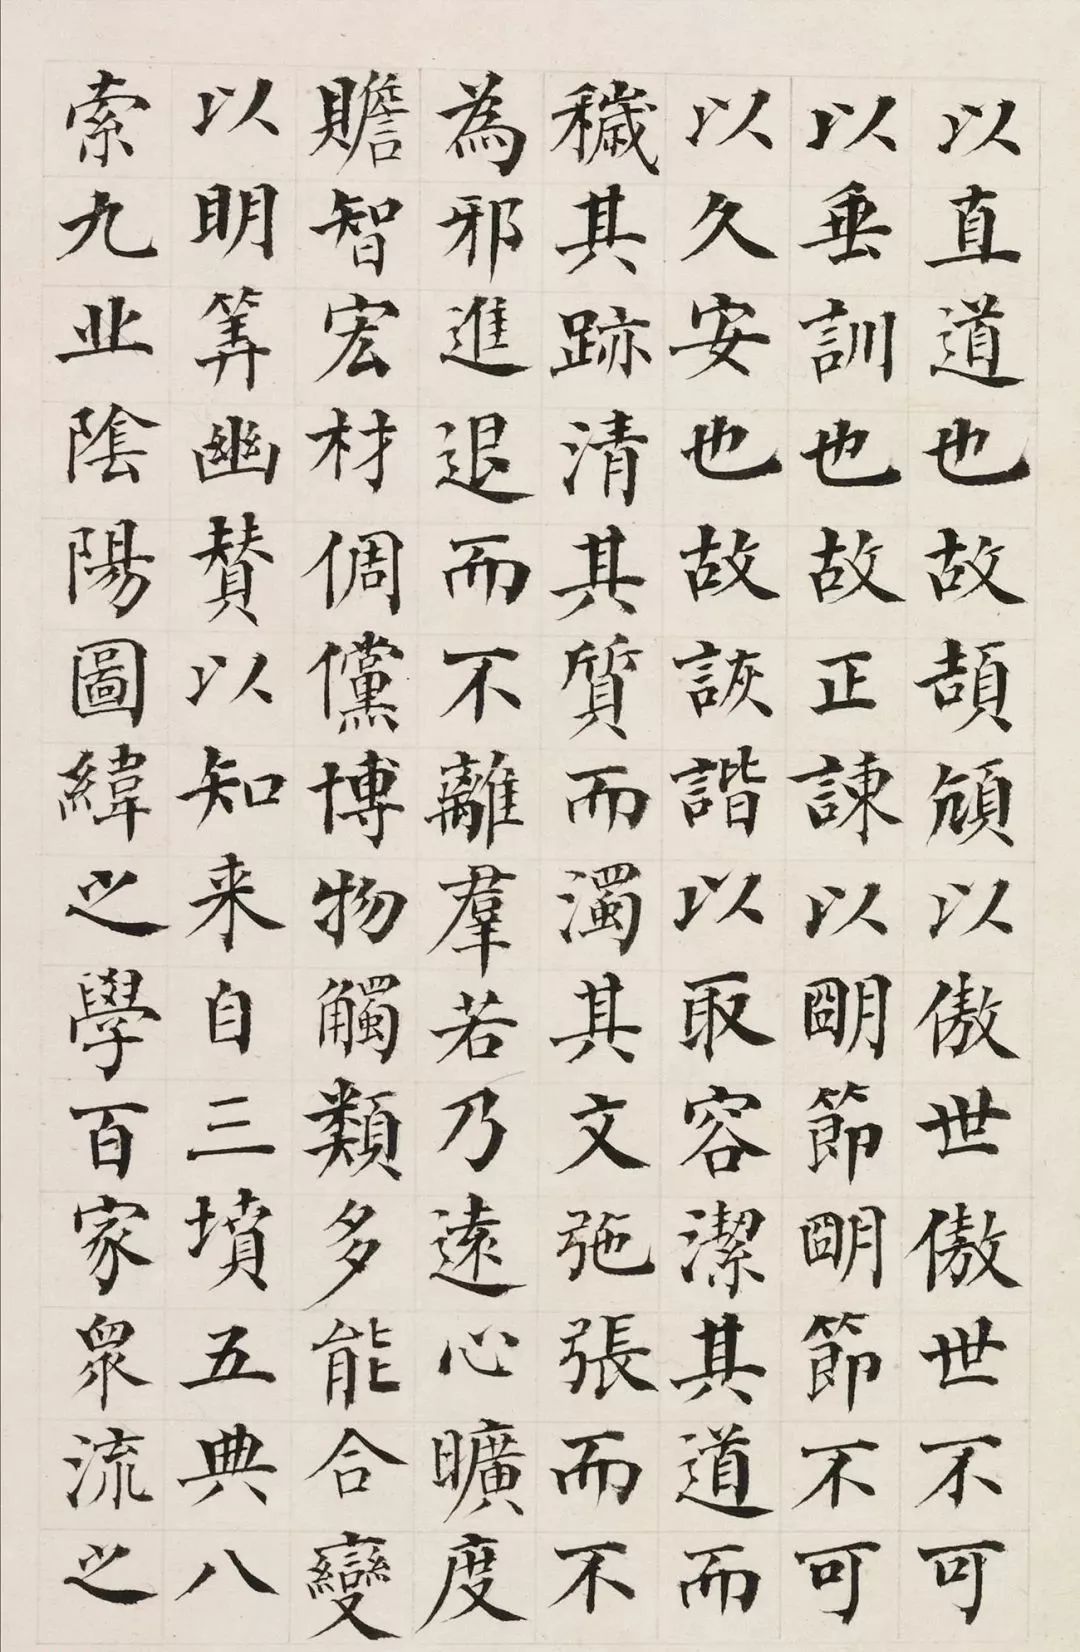 以直道也故頡頏以傲世傲世不可
以垂訓也故正諫以朙節朙節不可
以久安也故詼諧以取容潔其道而
穢其跡清其質而濁其文弛張而不
為邪進退而不離羣若乃遠心曠度
贍智宏材倜儻博物觸類多能合變
以明筭幽贊以知来自三墳五典八
索九丘陰陽圖緯之學百家衆流之